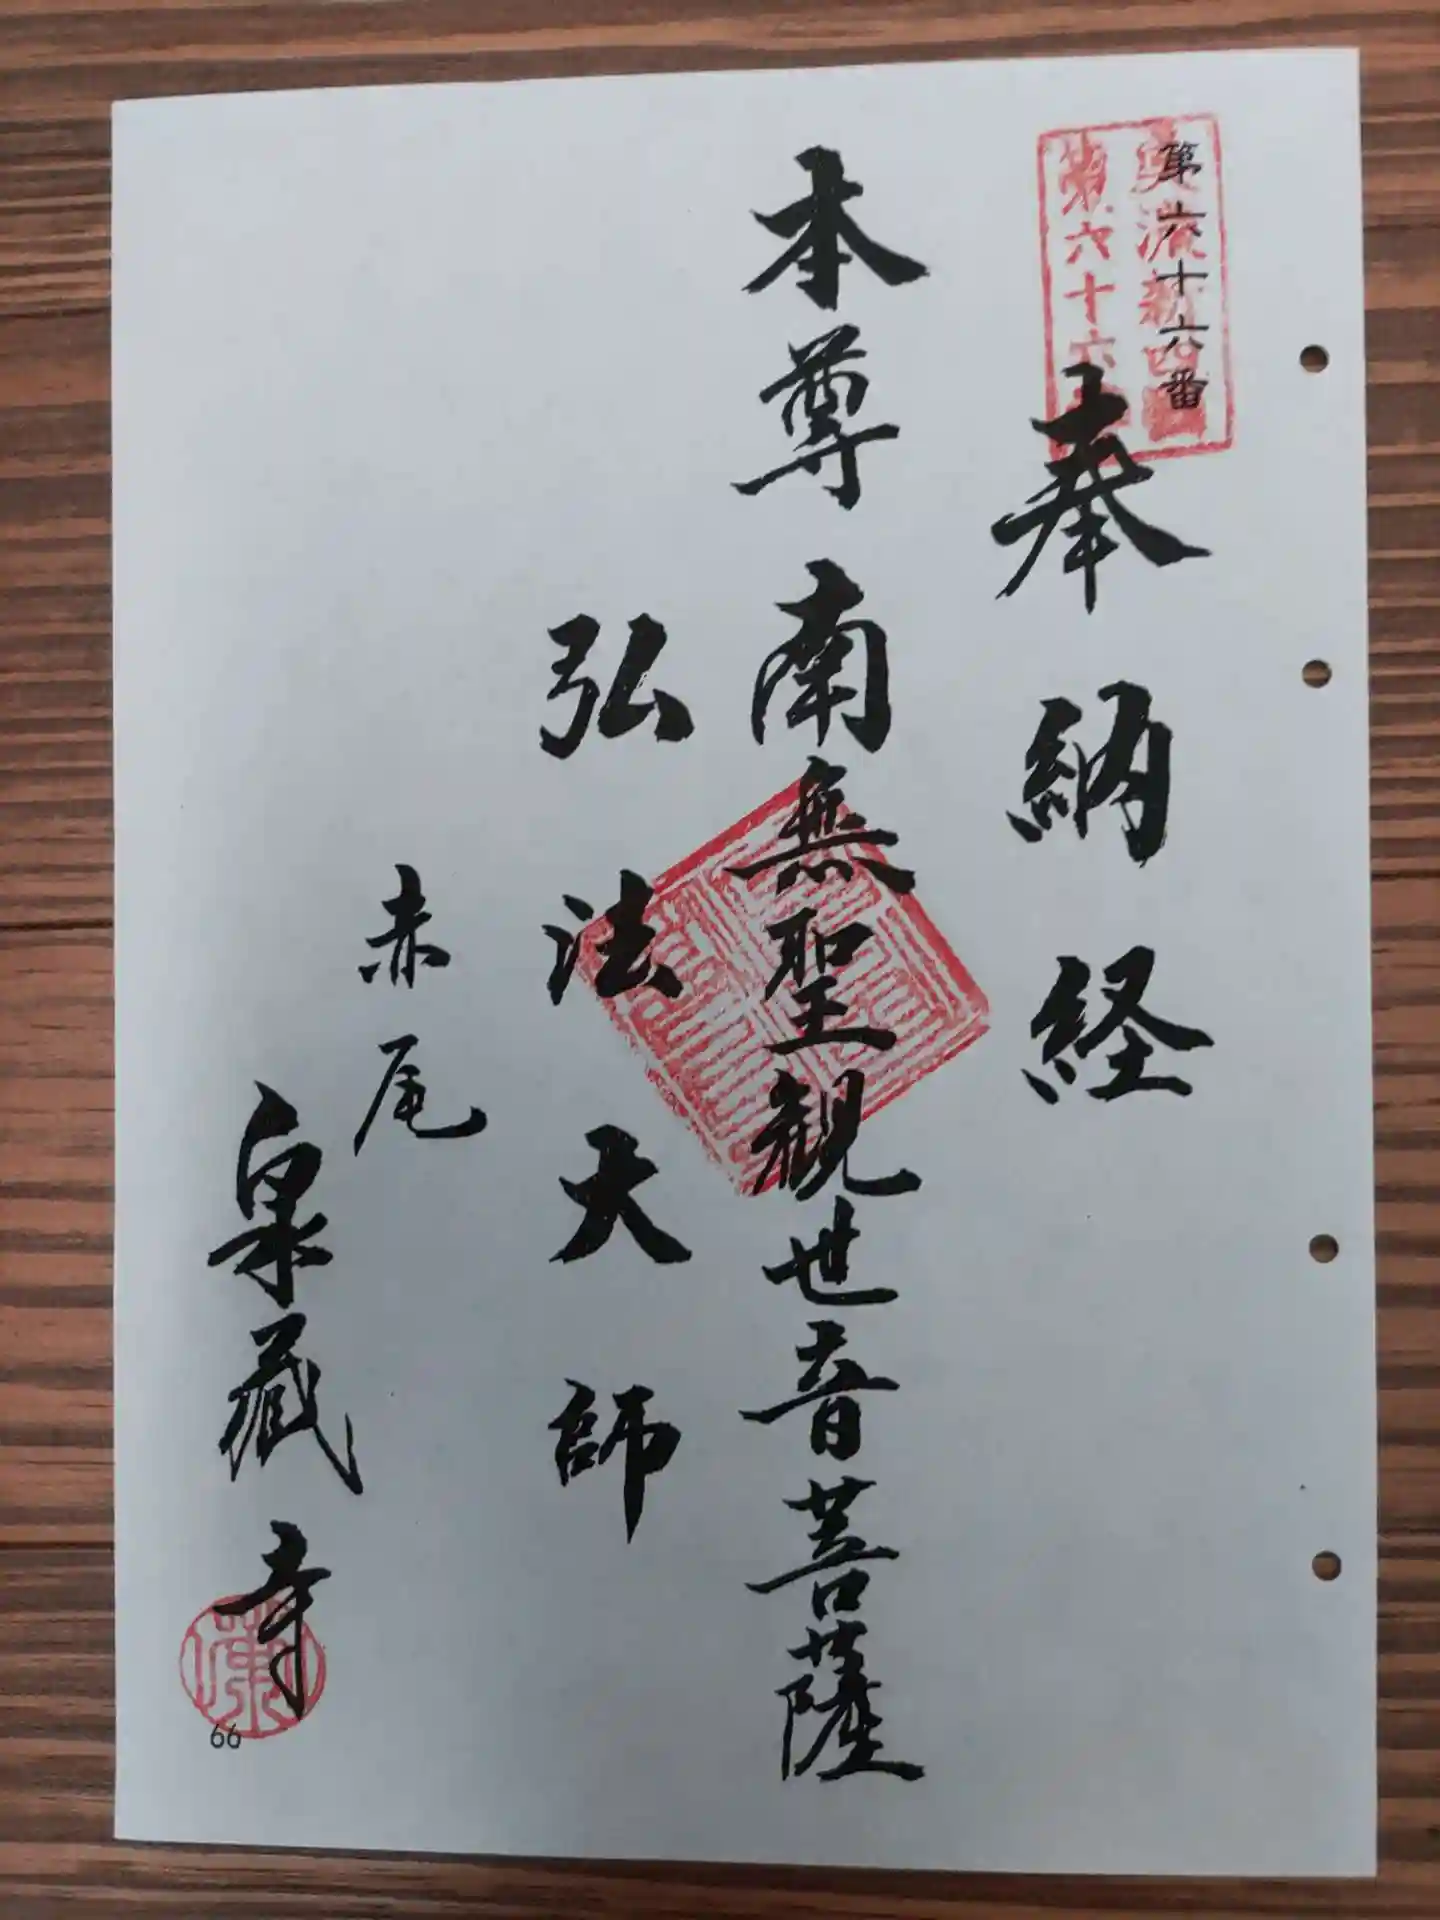 第六十六番
奉納経
本尊 南無聖観世音菩薩
弘法大師
赤尾
泉蔵寺
66